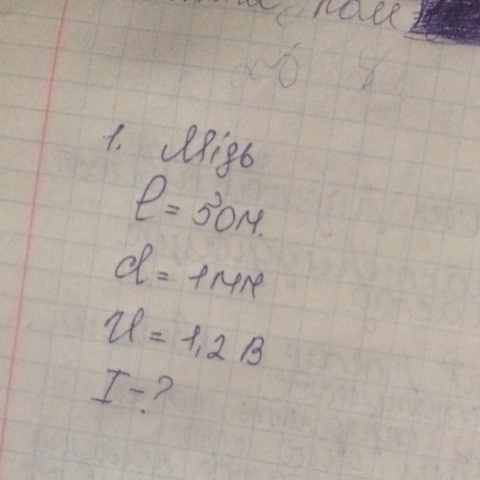 1. Мідь
l = 50м.
d = 1мм
U = 1,2 В
I - ?